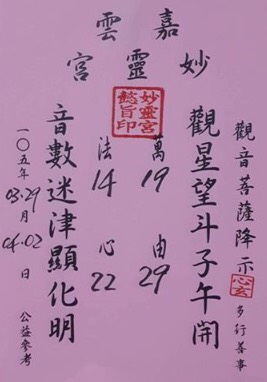 嘉雲
妙靈宮
觀音菩薩降示 心玄 多行善事
觀星望斗子午開
妙靈宮
懿旨印
萬 19 由 29
法 14 心 22
音數迷津顯化明
一〇五年 03.29 月 04.02 日 公益參考